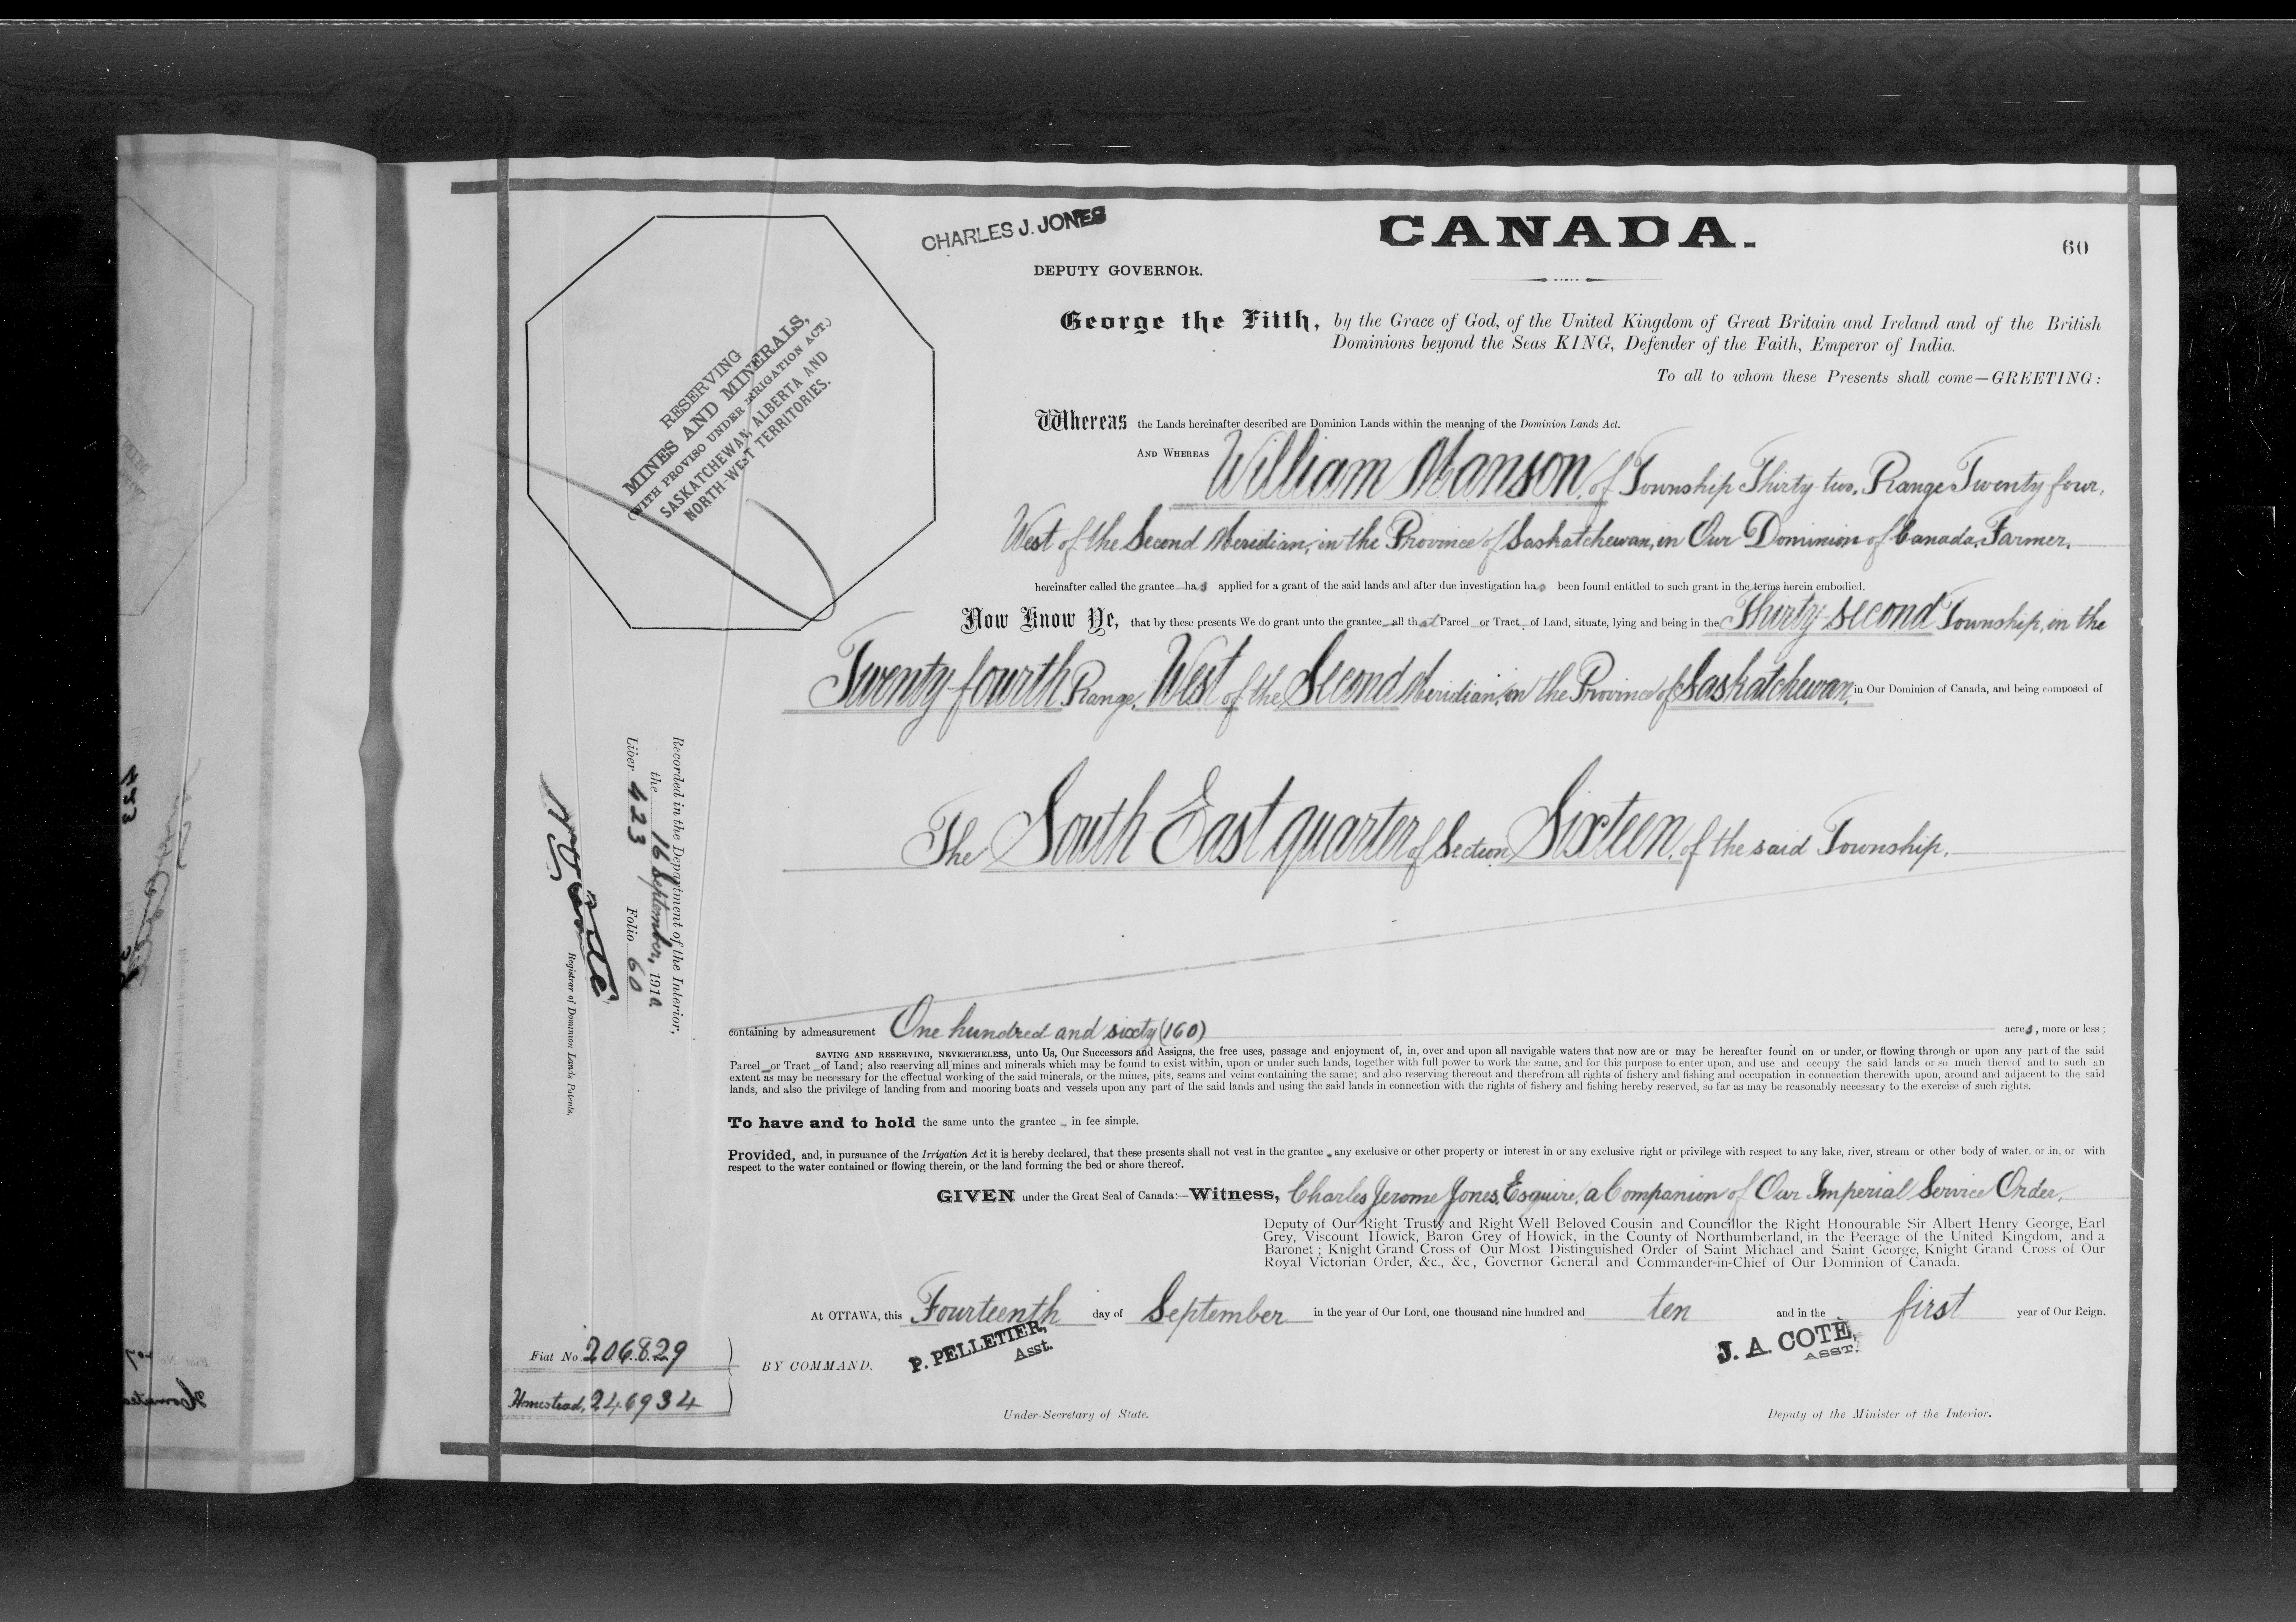 CHARLES J. JONES
CANADA.
60
DEPUTY GOVERNOR.
George the Fifth, by the Grace of God, of the United Kingdom of Great Britain and Ireland and of the British
Dominions beyond the Seas KING, Defender of the Faith, Emperor of India.
To all to whom these Presents shall come—GREETING:
RESERVING
MINES AND MINERALS,
(WITH PROVISO UNDER IRRIGATION ACT.)
SASKATCHEWAN, ALBERTA AND
NORTH-WEST TERRITORIES.
Whereas the Lands hereinafter described are Dominion Lands within the meaning of the Dominion Lands Act.
AND WHEREAS William Manson, of Township Thirty-two, Range Twenty four,
West of the Second Meridian, in the Province of Saskatchewan, in Our Dominion of Canada, Farmer,
hereinafter called the grantee has applied for a grant of the said lands and after due investigation has been found entitled to such grant in the terms herein embodied.
Now Know Ye, that by these presents We do grant unto the grantee all that Parcel or Tract of Land, situate, lying and being in the Thirty-second Township, in the
Twenty-fourth Range, West of the Second Meridian, in the Province of Saskatchewan, in Our Dominion of Canada, and being composed of
The South East quarter of Section Sixteen, of the said Township.
Recorded in the Department of the Interior,
the 16 September, 1910
Liber 423 Folio 60
Registrar of Dominion Lands Patents.
containing by admeasurement One hundred and sixty (160) acres, more or less;
SAVING AND RESERVING, NEVERTHELESS, unto Us, Our Successors and Assigns, the free uses, passage and enjoyment of, in, over and upon all navigable waters that now are or may be hereafter found on or under, or flowing through or upon any part of the said
Parcel or Tract of Land; also reserving all mines and minerals which may be found to exist within, upon or under such lands, together with full power to work the same, and for this purpose to enter upon, and use and occupy the said lands or so much thereof and to such an
extent as may be necessary for the effectual working of the said minerals, or the mines, pits, seams and veins containing the same; and also reserving thereout and therefrom all rights of fishery and fishing and occupation in connection therewith upon, around and adjacent to the said
lands, and also the privilege of landing from and mooring boats and vessels upon any part of the said lands and using the said lands in connection with the rights of fishery and fishing hereby reserved, so far as may be reasonably necessary to the exercise of such rights.
To have and to hold the same unto the grantee in fee simple.
Provided, and, in pursuance of the Irrigation Act it is hereby declared, that these presents shall not vest in the grantee any exclusive or other property or interest in or any exclusive right or privilege with respect to any lake, river, stream or other body of water, or in, or with
respect to the water contained or flowing therein, or the land forming the bed or shore thereof.
GIVEN under the Great Seal of Canada:—Witness, Charles Jerome Jones, Esquire, a Companion of Our Imperial Service Order,
Deputy of Our Right Trusty and Right Well Beloved Cousin and Councillor the Right Honourable Sir Albert Henry George, Earl
Grey, Viscount Howick, Baron Grey of Howick, in the County of Northumberland, in the Peerage of the United Kingdom, and a
Baronet; Knight Grand Cross of Our Most Distinguished Order of Saint Michael and Saint George, Knight Grand Cross of Our
Royal Victorian Order, &c., &c., Governor General and Commander-in-Chief of Our Dominion of Canada.
At OTTAWA, this Fourteenth day of September in the year of Our Lord, one thousand nine hundred and ten and in the first year of Our Reign.
Fiat No. 206829
Homestead, 246934
BY COMMAND,
P. PELLETIER,
Asst.
J. A. COTE,
ASST.
Under-Secretary of State.
Deputy of the Minister of the Interior.